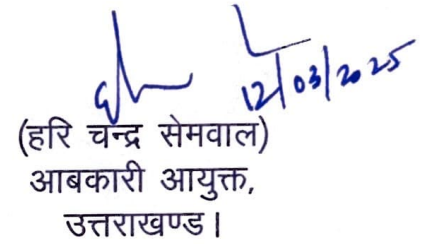 12/03/2025
(हरि चन्द्र सेमवाल)
आबकारी आयुक्त,
उत्तराखण्ड।